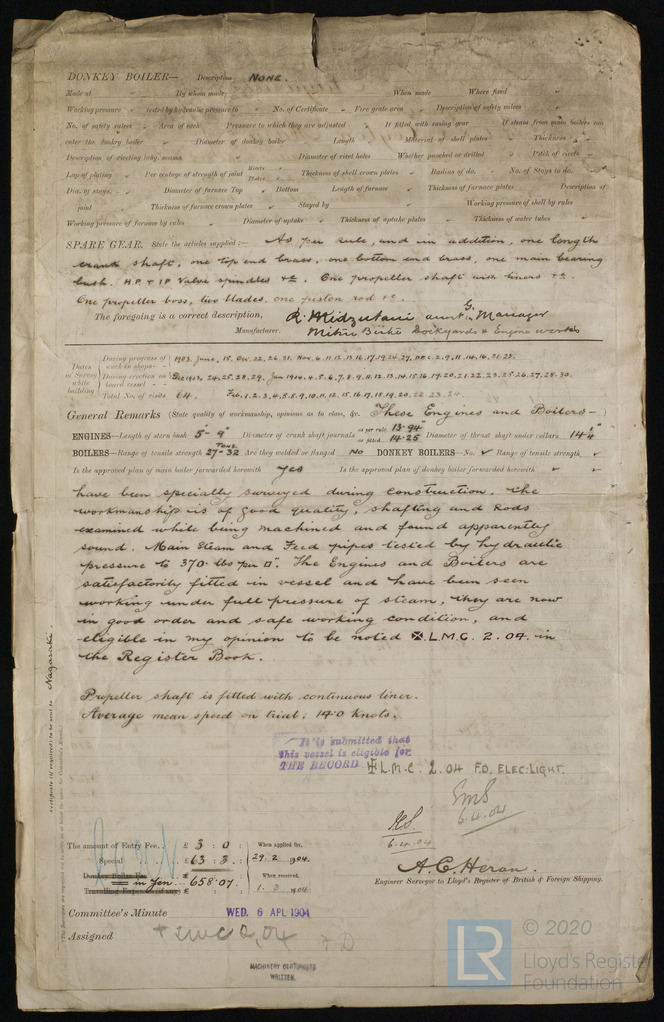 DONKEY BOILER— Description NONE.
Made at By whom made When made Where fixed
Working pressure tested by hydraulic pressure to No. of Certificate Fire grate area Description of safety valves
No. of safety valves Area of each Pressure to which they are adjusted If fitted with easing gear If steam from main boilers can
enter the donkey boiler Diameter of donkey boiler Length Material of shell plates Thickness
Description of riveting long. seams Diameter of rivet holes Whether punched or drilled Pitch of rivets
Lap of plating Per centage of strength of joint Rivets Plates Thickness of shell crown plates Radius of do. No. of Stays to do.
Dia. of stays. Diameter of furnace Top Bottom Length of furnace Thickness of furnace plates Description of
joint Thickness of furnace crown plates Stayed by Working pressure of shell by rules
Working pressure of furnace by rules Diameter of uptake Thickness of uptake plates Thickness of water tubes
SPARE GEAR. State the articles supplied:— As per rule, and in addition, one length
crank shaft, one top end brass, one bottom end brass, one main bearing
bush. H.P. & I.P. Valve spindles &c. One propeller shaft with liners &c.
One propeller boss, two blades, one piston rod &c.
The foregoing is a correct description,
R. Midzutani Manager
Manufacturer. Mitsu Bishi Dockyards & Engine works
Dates of Survey while building
During progress of work in shops - - 1903. June, 15. Oct. 22. 26. 31. Nov. 6. 11. 12. 13. 16. 17. 19. 24. 27. Dec. 2. 9. 11. 14. 16. 21. 23.
During erection on board vessel - - Dec 1903. 24. 25. 28. 29. Jan 1904. 4. 5. 6. 7. 8. 9. 11. 12. 13. 14. 15. 16. 19. 20. 21. 22. 23. 25. 26. 27. 28. 30.
Total No. of visits 64. Feb. 1. 2. 3. 4. 5. 8. 9. 10. 11. 12. 15. 16. 17. 18. 19. 20. 22. 23. 24.
General Remarks (State quality of workmanship, opinions as to class, &c. These Engines and Boilers—
ENGINES—Length of stern bush 5'-9" Diameter of crank shaft journals as per rule 13.94" as fitted 14.25 Diameter of thrust shaft under collars 14¼"
BOILERS—Range of tensile strength 27-32 Tons Are they welded or flanged No DONKEY BOILERS—No. Range of tensile strength
Is the approved plan of main boiler forwarded herewith Yes Is the approved plan of donkey boiler forwarded herewith
have been specially surveyed during construction. The
workmanship is of good quality, shafting and rods
examined while being machined and found apparently
sound. Main Steam and Feed pipes tested by hydraulic
pressure to 370. lbs per □". The Engines and Boilers are
satisfactorily fitted in vessel and have been seen
working under full pressure of steam, they are now
in good order and safe working condition, and
eligible in my opinion to be noted ✠.L.M.C. 2.04. in
the Register Book.
Propeller shaft is fitted with continuous liner.
Average mean speed on trial: 14.0 knots.
It is submitted that
this vessel is eligible for
THE RECORD ✠ L.M.C. 2.04 F.D. ELEC: LIGHT.
6.4.04
6.4.04
Certificate (if required) to be sent to Nagasaki.
The amount of Entry Fee.. £ 3 : 0 : When applied for,
Special £ 63 : 3 : 29. 2. 1904.
Donkey Boiler Fee in Yen £ 658.07. When received,
Travelling Expenses (if any) £ 1. 3. 1904
A. C. Heron.
Engineer Surveyor to Lloyd's Register of British & Foreign Shipping.
Committee's Minute WED. 6 APL 1904
Assigned + LMC 2,04 FD
MACHINERY CERTIFICATE
WRITTEN.
LR © 2020
Lloyd's Register
Foundation